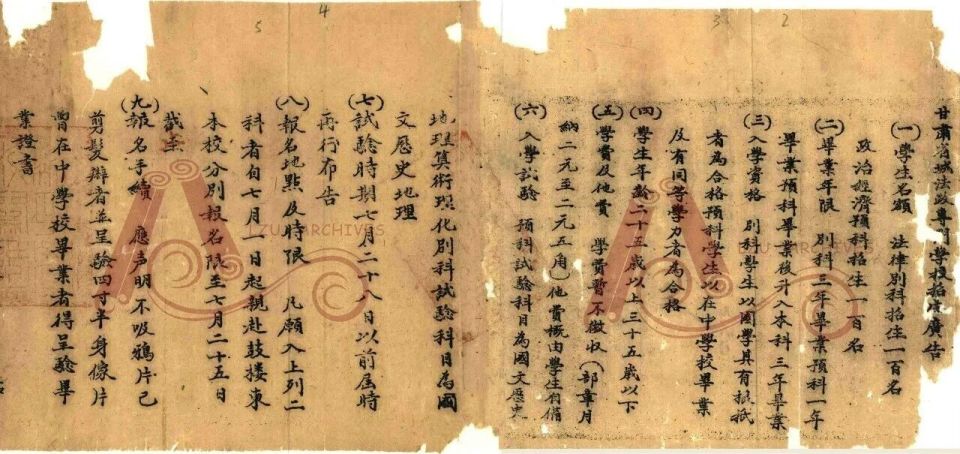 甘肅省城法政專門學校招生廣告
(一)學生名額　法律別科招生一百名
政治經濟預科招生一百名
(二)畢業年限　別科三年畢業預科一年
畢業預科畢業後升入本科三年畢業
(三)入學資格　別科學生以國學具有根柢
者為合格預科學生以在中學校畢業
及有同等學力者為合格
(四)學生年齡二十五歲以上三十五歲以下
(五)學費及他費　學費暫不徵收(部章月
納二元至二元五角)他費概由學生自備
(六)入學試驗　預科試驗科目為國文歷史
地理算術理化別科試驗科目為國
文歷史地理
(七)試驗時期七月二十八日以前屆時
再行布告
(八)報名地點及時限　凡願入上列二
科者自七月一日起親赴鼓樓東
本校分別報名限至七月二十五日
截止
(九)報名手續　應声明不吸鴉片已
剪髮辮者並呈驗四寸半身像片
曾在中學校畢業者得呈驗畢
業證書
LZU ARCHIVES
LZU ARCHIVES
5
4
3
2